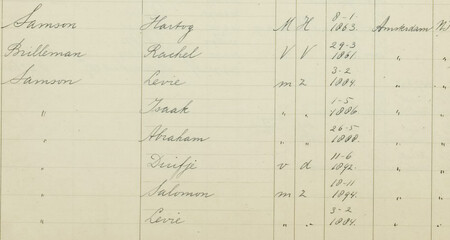 Samson Hartog M H 8-1 1863. Amsterdam N.I
Brilleman Rachel V V 29-3 1861 " "
Samson Levie m z 3-2 1884. " "
" Isaak " " 1-5 1886. " "
" Abraham " " 26-5 1888. " "
" Duifje v d 11-6 1892. " "
" Salomon m z 18-11 1894. " "
" Levie " " 3-2 1884. " "